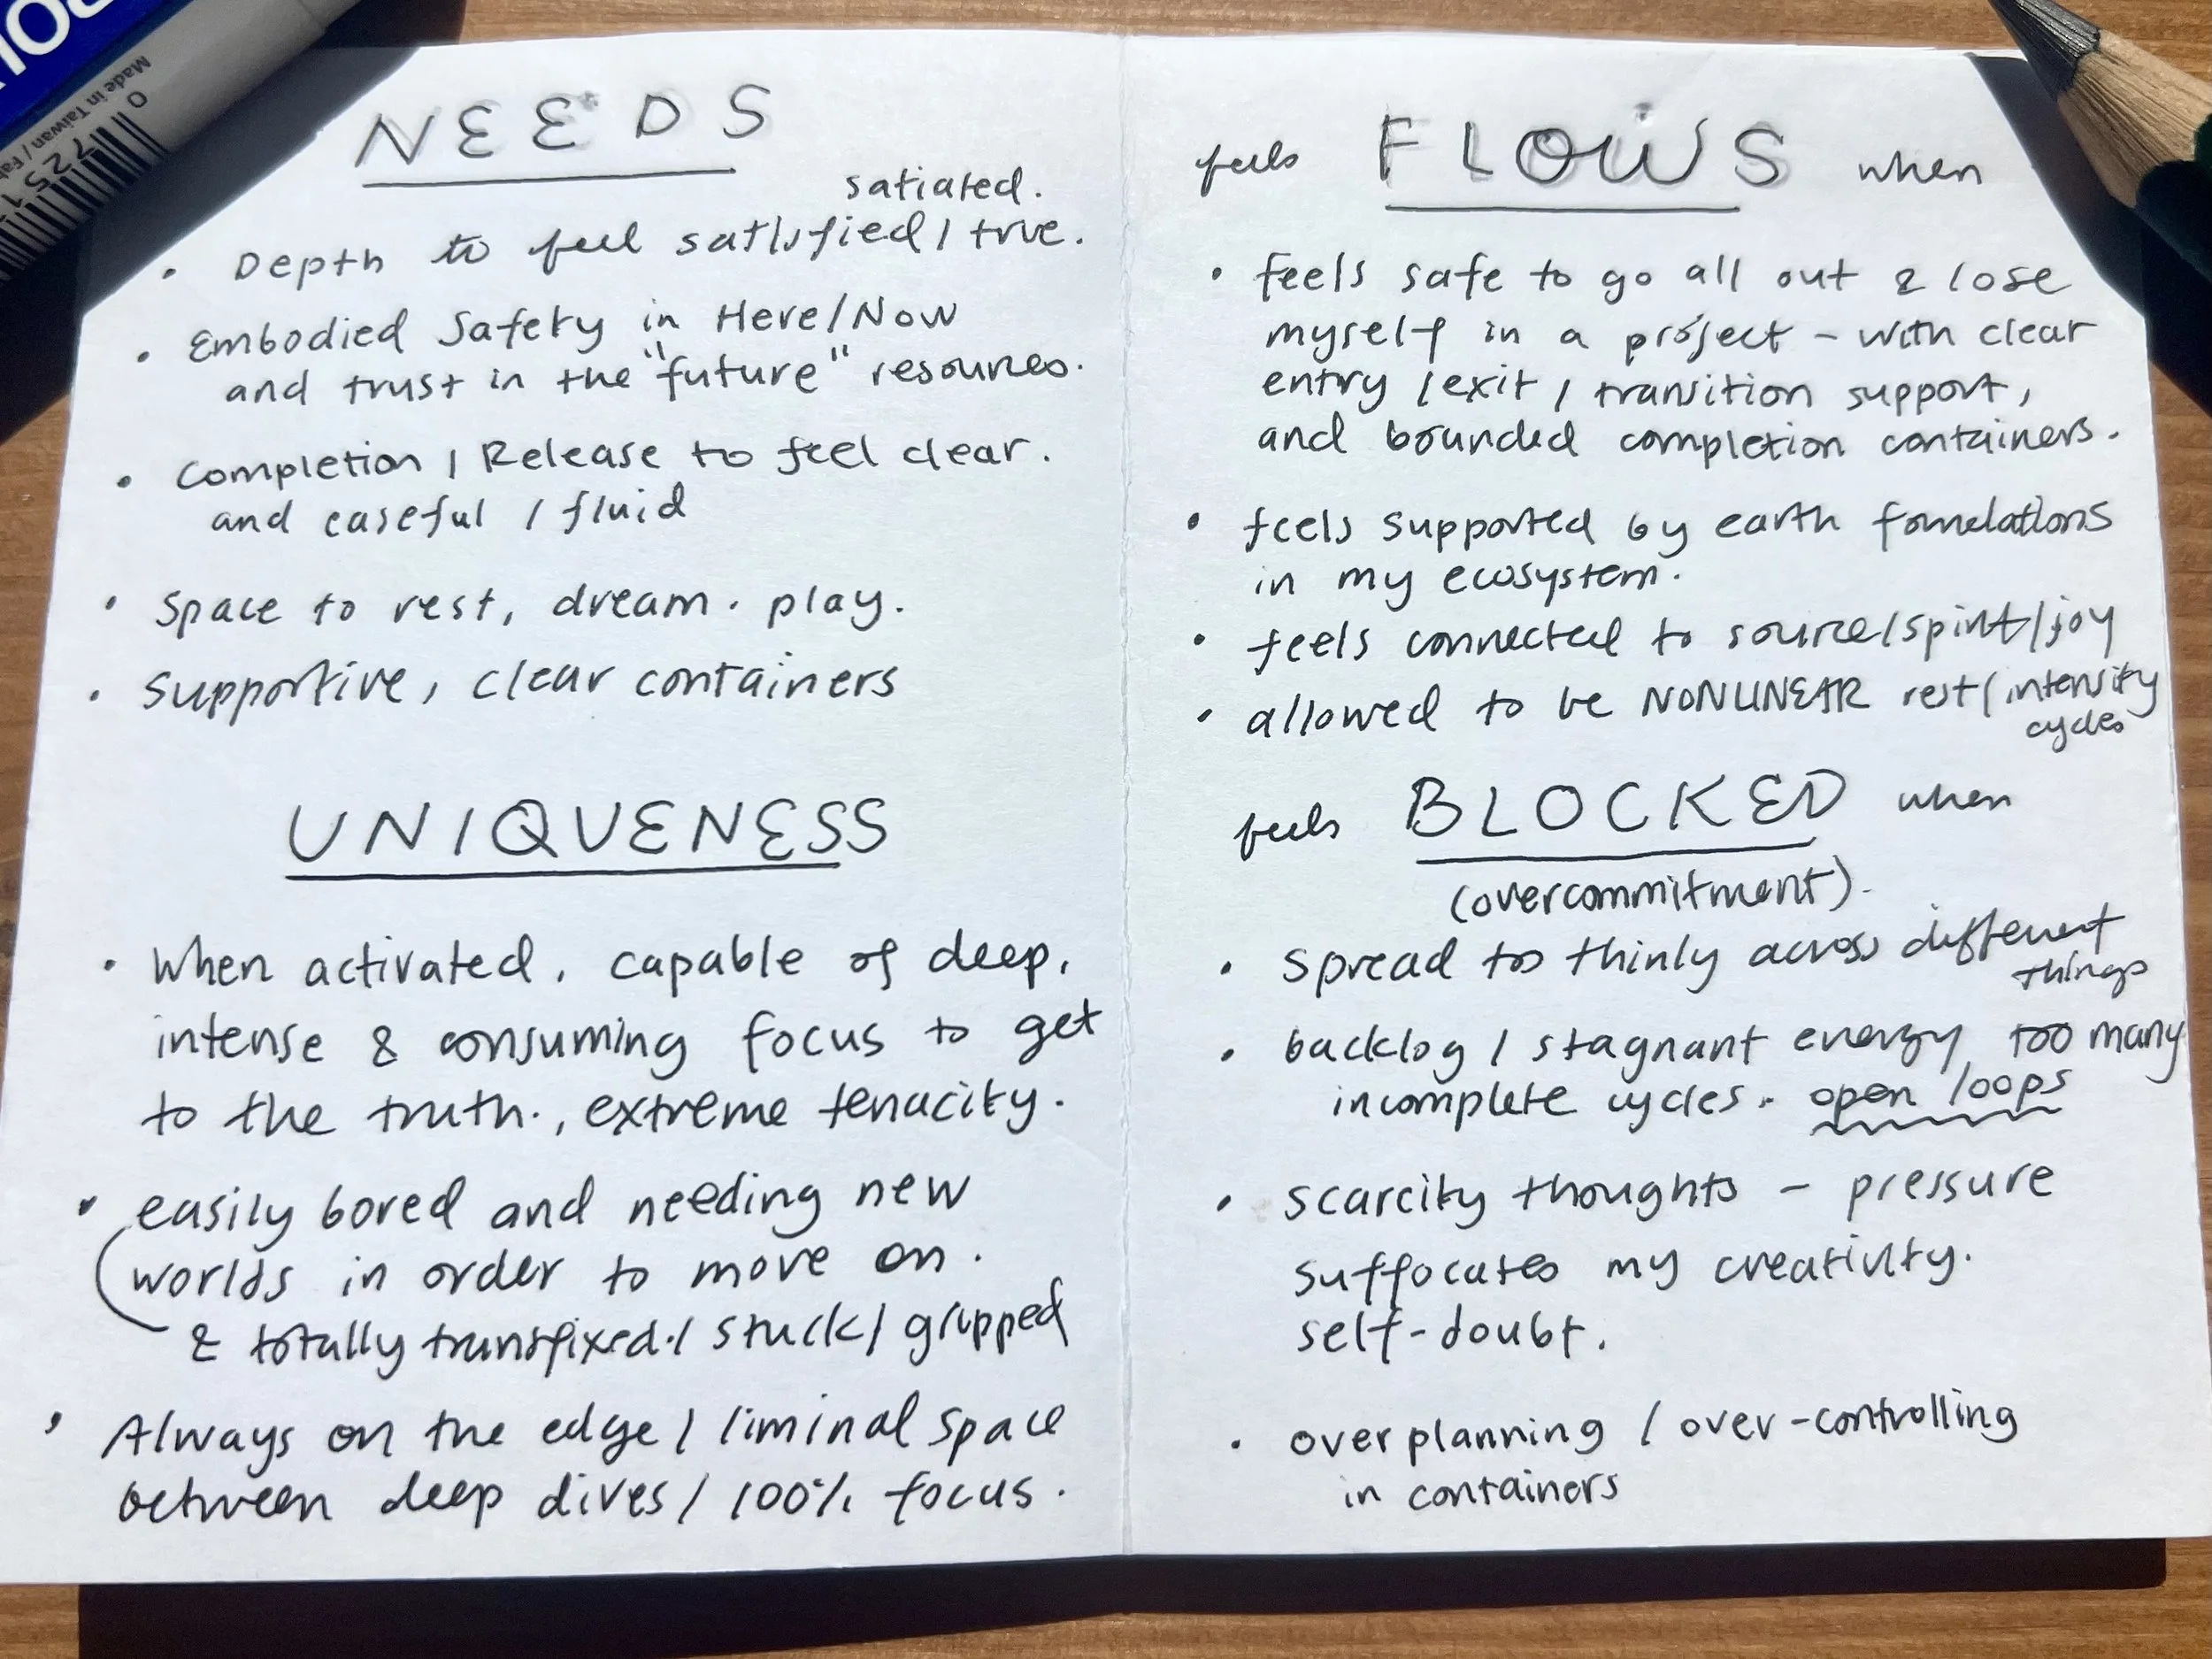 NEEDS
satiated.
• Depth to feel satisfied / true.
• Embodied Safety in Here/Now
and trust in the "future" resources.
• Completion / Release to feel clear.
and easeful / fluid
• Space to rest, dream. play.
• Supportive, clear containers
UNIQUENESS
• When activated, capable of deep,
intense & consuming focus to get
to the truth., extreme tenacity.
• easily bored and needing new
worlds in order to move on.
& totally transfixed / stuck / gripped
• Always on the edge / liminal space
between deep dives / 100% focus.
feels FLOWS when
• feels safe to go all out & lose
myself in a project - with clear
entry / exit / transition support,
and bounded completion containers.
• feels supported by earth foundations
in my ecosystem.
• feels connected to source/spirit/joy
• allowed to be NONLINEAR rest/intensity
cycles
feels BLOCKED when
(overcommitment).
• Spread too thinly across different
things
• backlog / stagnant energy too many
incomplete cycles. open loops
• scarcity thoughts - pressure
suffocates my creativity.
self-doubt.
• overplanning / over-controlling
in containers
Made in Taiwan /
0 7251